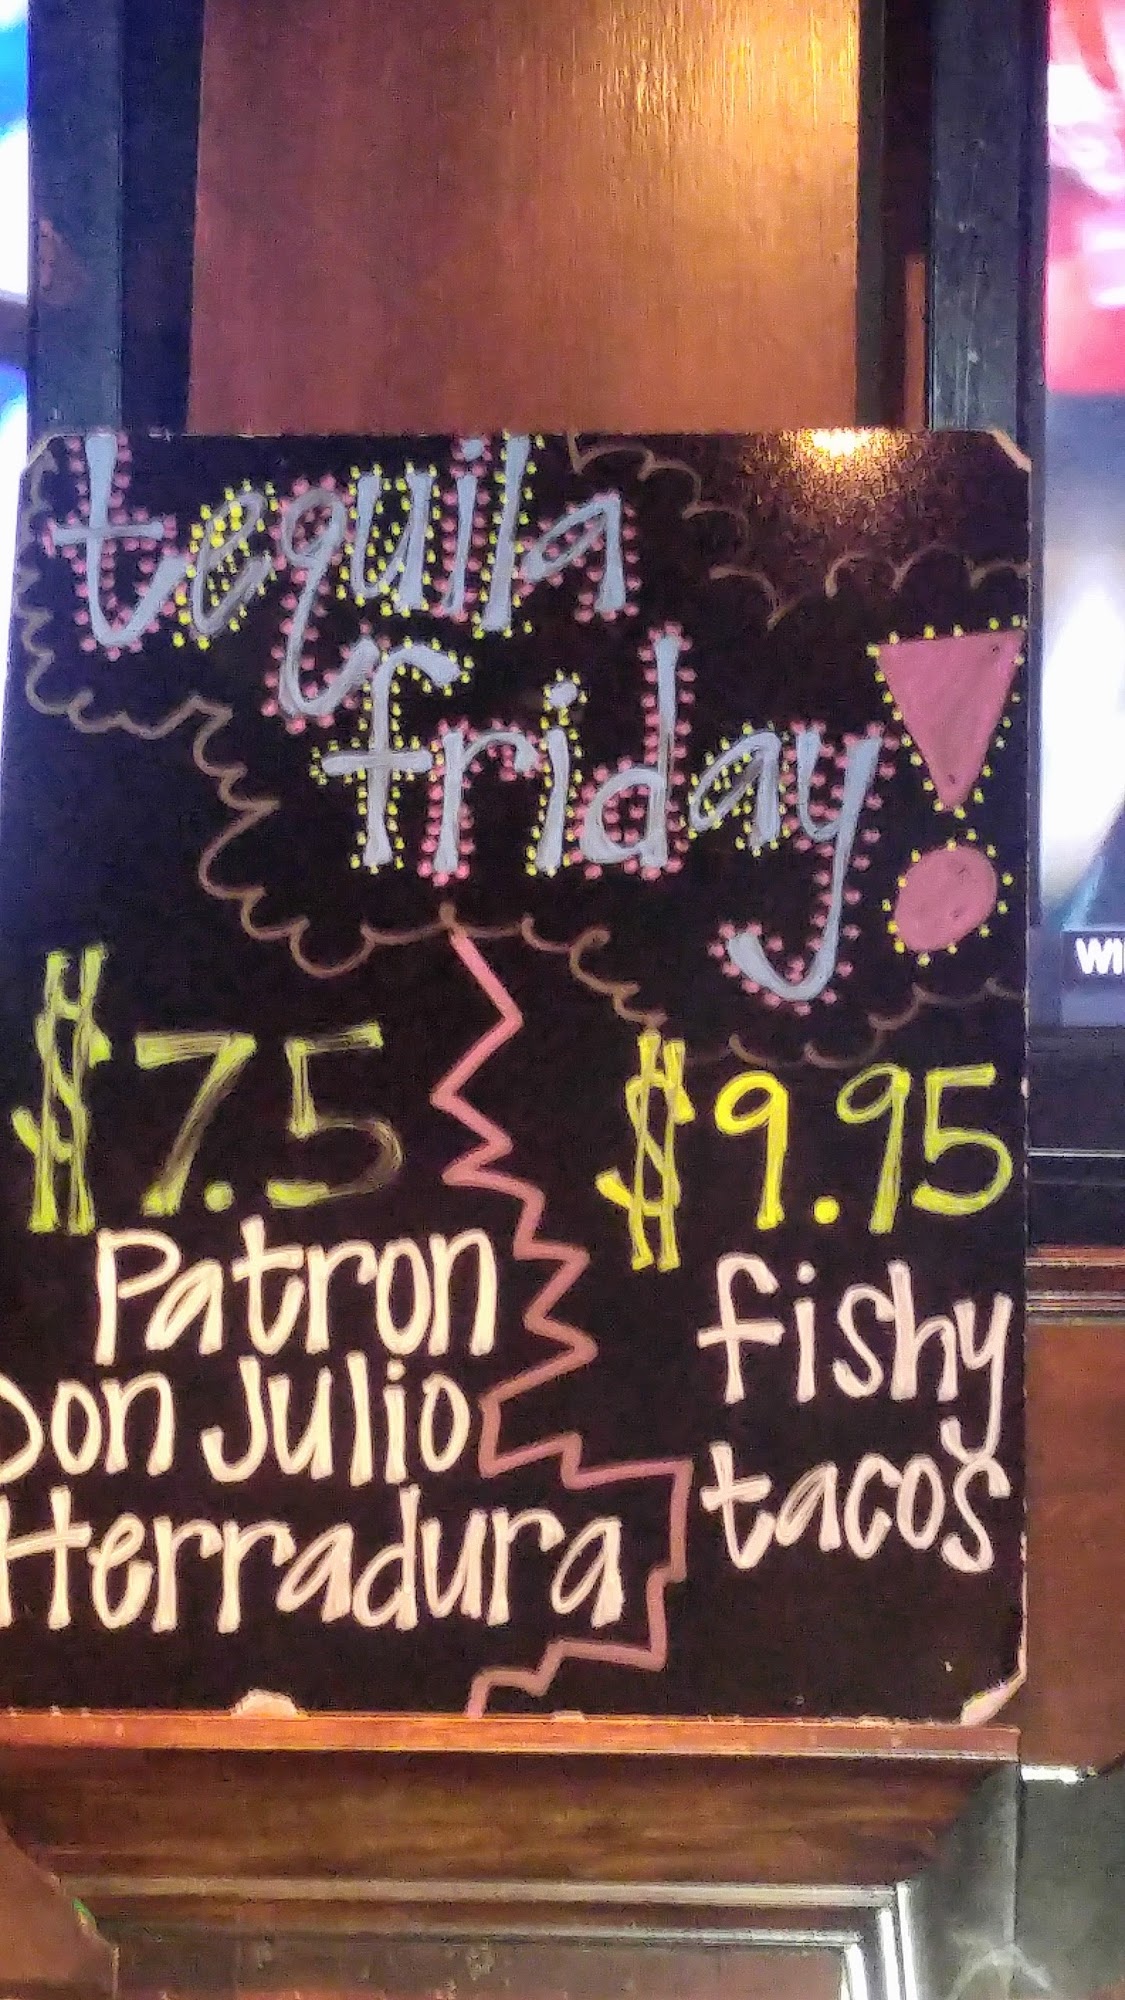 tequila
friday!
$7.5
Patron
Don Julio
Herradura
$9.95
fishy
tacos